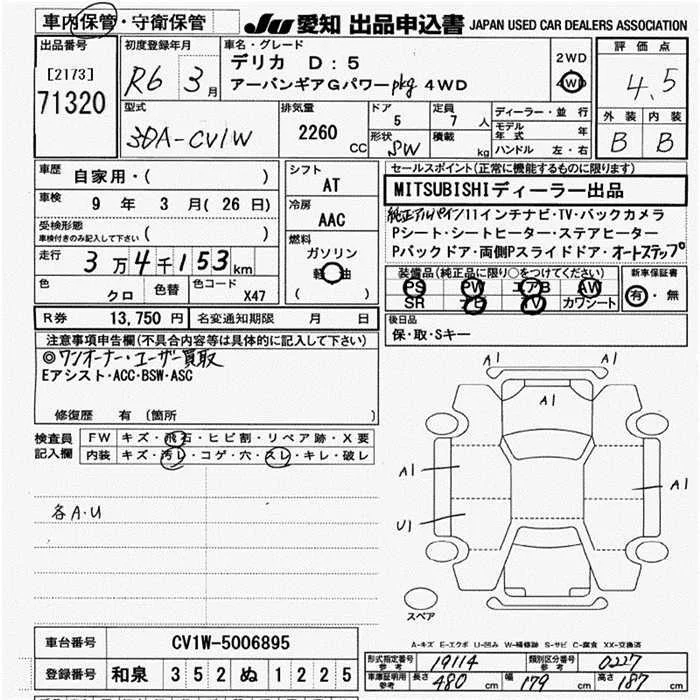 車内保管・守衛保管
JU 愛知 出品申込書 JAPAN USED CAR DEALERS ASSOCIATION
出品番号
[2173]
71320
初度登録年月
R6 3月
車名・グレード
デリカ D:5
アーバンギアGパワーpkg 4WD
2WD
4WD
評価点
4.5
外装 内装
B B
型式
3DA-CV1W
排気量
2260 CC
ドア
5
形状
SW
定員
7人
積載
kg
ディーラー・並行
モデル年式 年
ハンドル 左・右
車歴
自家用・( )
車検 9年 3月(26日)
受検形態
車検付きのみ記入して下さい ( )
走行 3万4千153km
色 クロ 色替 色コード X47
シフト
AT
冷房
AAC
燃料
ガソリン
軽油
( )
セールスポイント(正常に機能するものに限ります)
MITSUBISHIディーラー出品
純正アルパイン11インチナビ・TV・バックカメラ
Pシート・シートヒーター・ステアヒーター
Pバックドア・両側Pスライドドア・オートステップ
装備品(純正品に限り○をつけてください)
PS PW エアB AW
SR ナビ TV カワシート
新車保証書
有・無
R券 13,750円 名変通知期限 月 日
後日品
保・取・Sキー
注意事項申告欄(不具合内容等は具体的に記入して下さい)
◎ワンオーナー・ユーザー買取
Eアシスト・ACC・BSW・ASC
修復歴 有 (箇所 )
検査員記入欄
FW キズ・飛石・ヒビ割・リペア跡・X要
内装 キズ・汚レ・コゲ・穴・スレ・キレ・破レ
各A・U
A1 A1
A1
A1
A1
U1
スペア
A-キズ E-エクボ U-凹み W-補修跡 S-サビ C-腐食 XX-交換済
車台番号 CV1W-5006895
登録番号 和泉 352 ぬ 1225
形式指定番号 参考 19114 類別区分番号 参考 0227
車庫証明用 参考 長さ 480 cm 幅 179 cm 高さ 187 cm